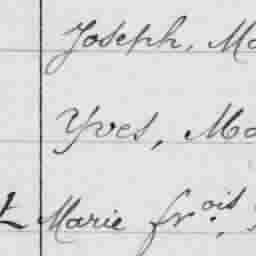 Joseph, Ma
Yves, Ma
t Marie fr.ois,